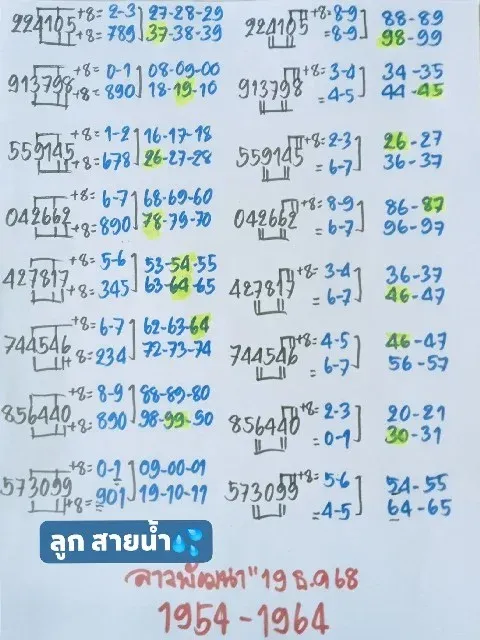 224105 +8= 2-3 27-28-29 224105 +8= 8-9 88-89
+8= 789 37-38-39 = 8-9 98-99
913798 +8= 0-1 08-09-00 913798 +8= 3-4 34-35
+8= 890 18-19-10 = 4-5 44-45
559145 +8= 1-2 16-17-18 559145 +8= 2-3 26-27
+8= 678 26-27-28 = 6-7 36-37
042662 +8= 6-7 68-69-60 042662 +8= 8-9 86-87
+8= 890 78-79-70 = 6-7 96-97
427817 +8= 5-6 53-54-55 427817 +8= 3-4 36-37
+8= 345 63-64-65 = 6-7 46-47
744546 +8= 6-7 62-63-64 744546 +8= 4-5 46-47
+8= 234 72-73-74 = 6-7 56-57
856440 +8= 8-9 88-89-80 856440 +8= 2-3 20-21
+8= 890 98-99-90 = 0-1 30-31
573099 +8= 0-1 09-00-01 573099 +8= 5-6 54-55
+8= 901 19-10-11 = 4-5 64-65
ลูก สายน้ำ💦
ลาวพัฒนา" 19 ธ.ค 68
1954 - 1964